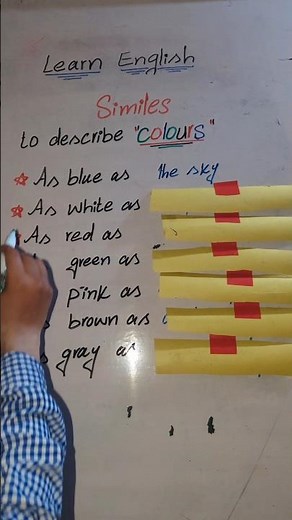 Learn English
Similes
to describe "colours"
As blue as the sky
As white as
As red as
green as
pink as
brown as
gray as